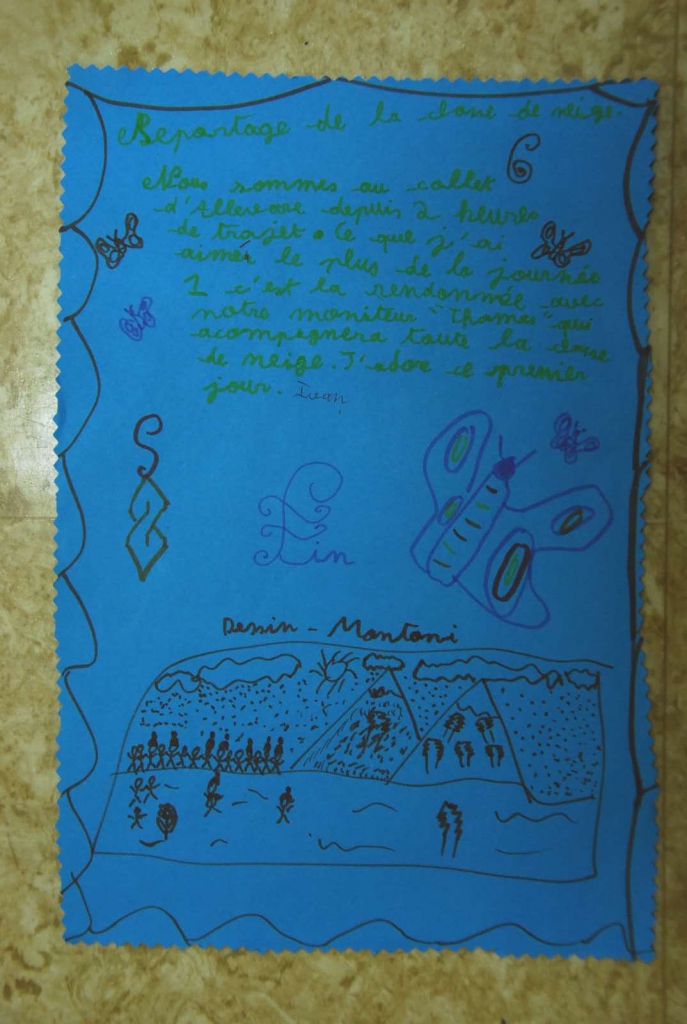 Reportage de la clase de neige.
6
Nous sommes au collet
d'Allevare depuis 2 heures
de trajet. Ce que j'ai
aimer le plus de la journée
1 c'est la rendonnée avec
notre moniteur "Thomas" qui
acompagnera toute la classe
de neige. J'adore ce premier
jour.
Fin
Dessin - Montani